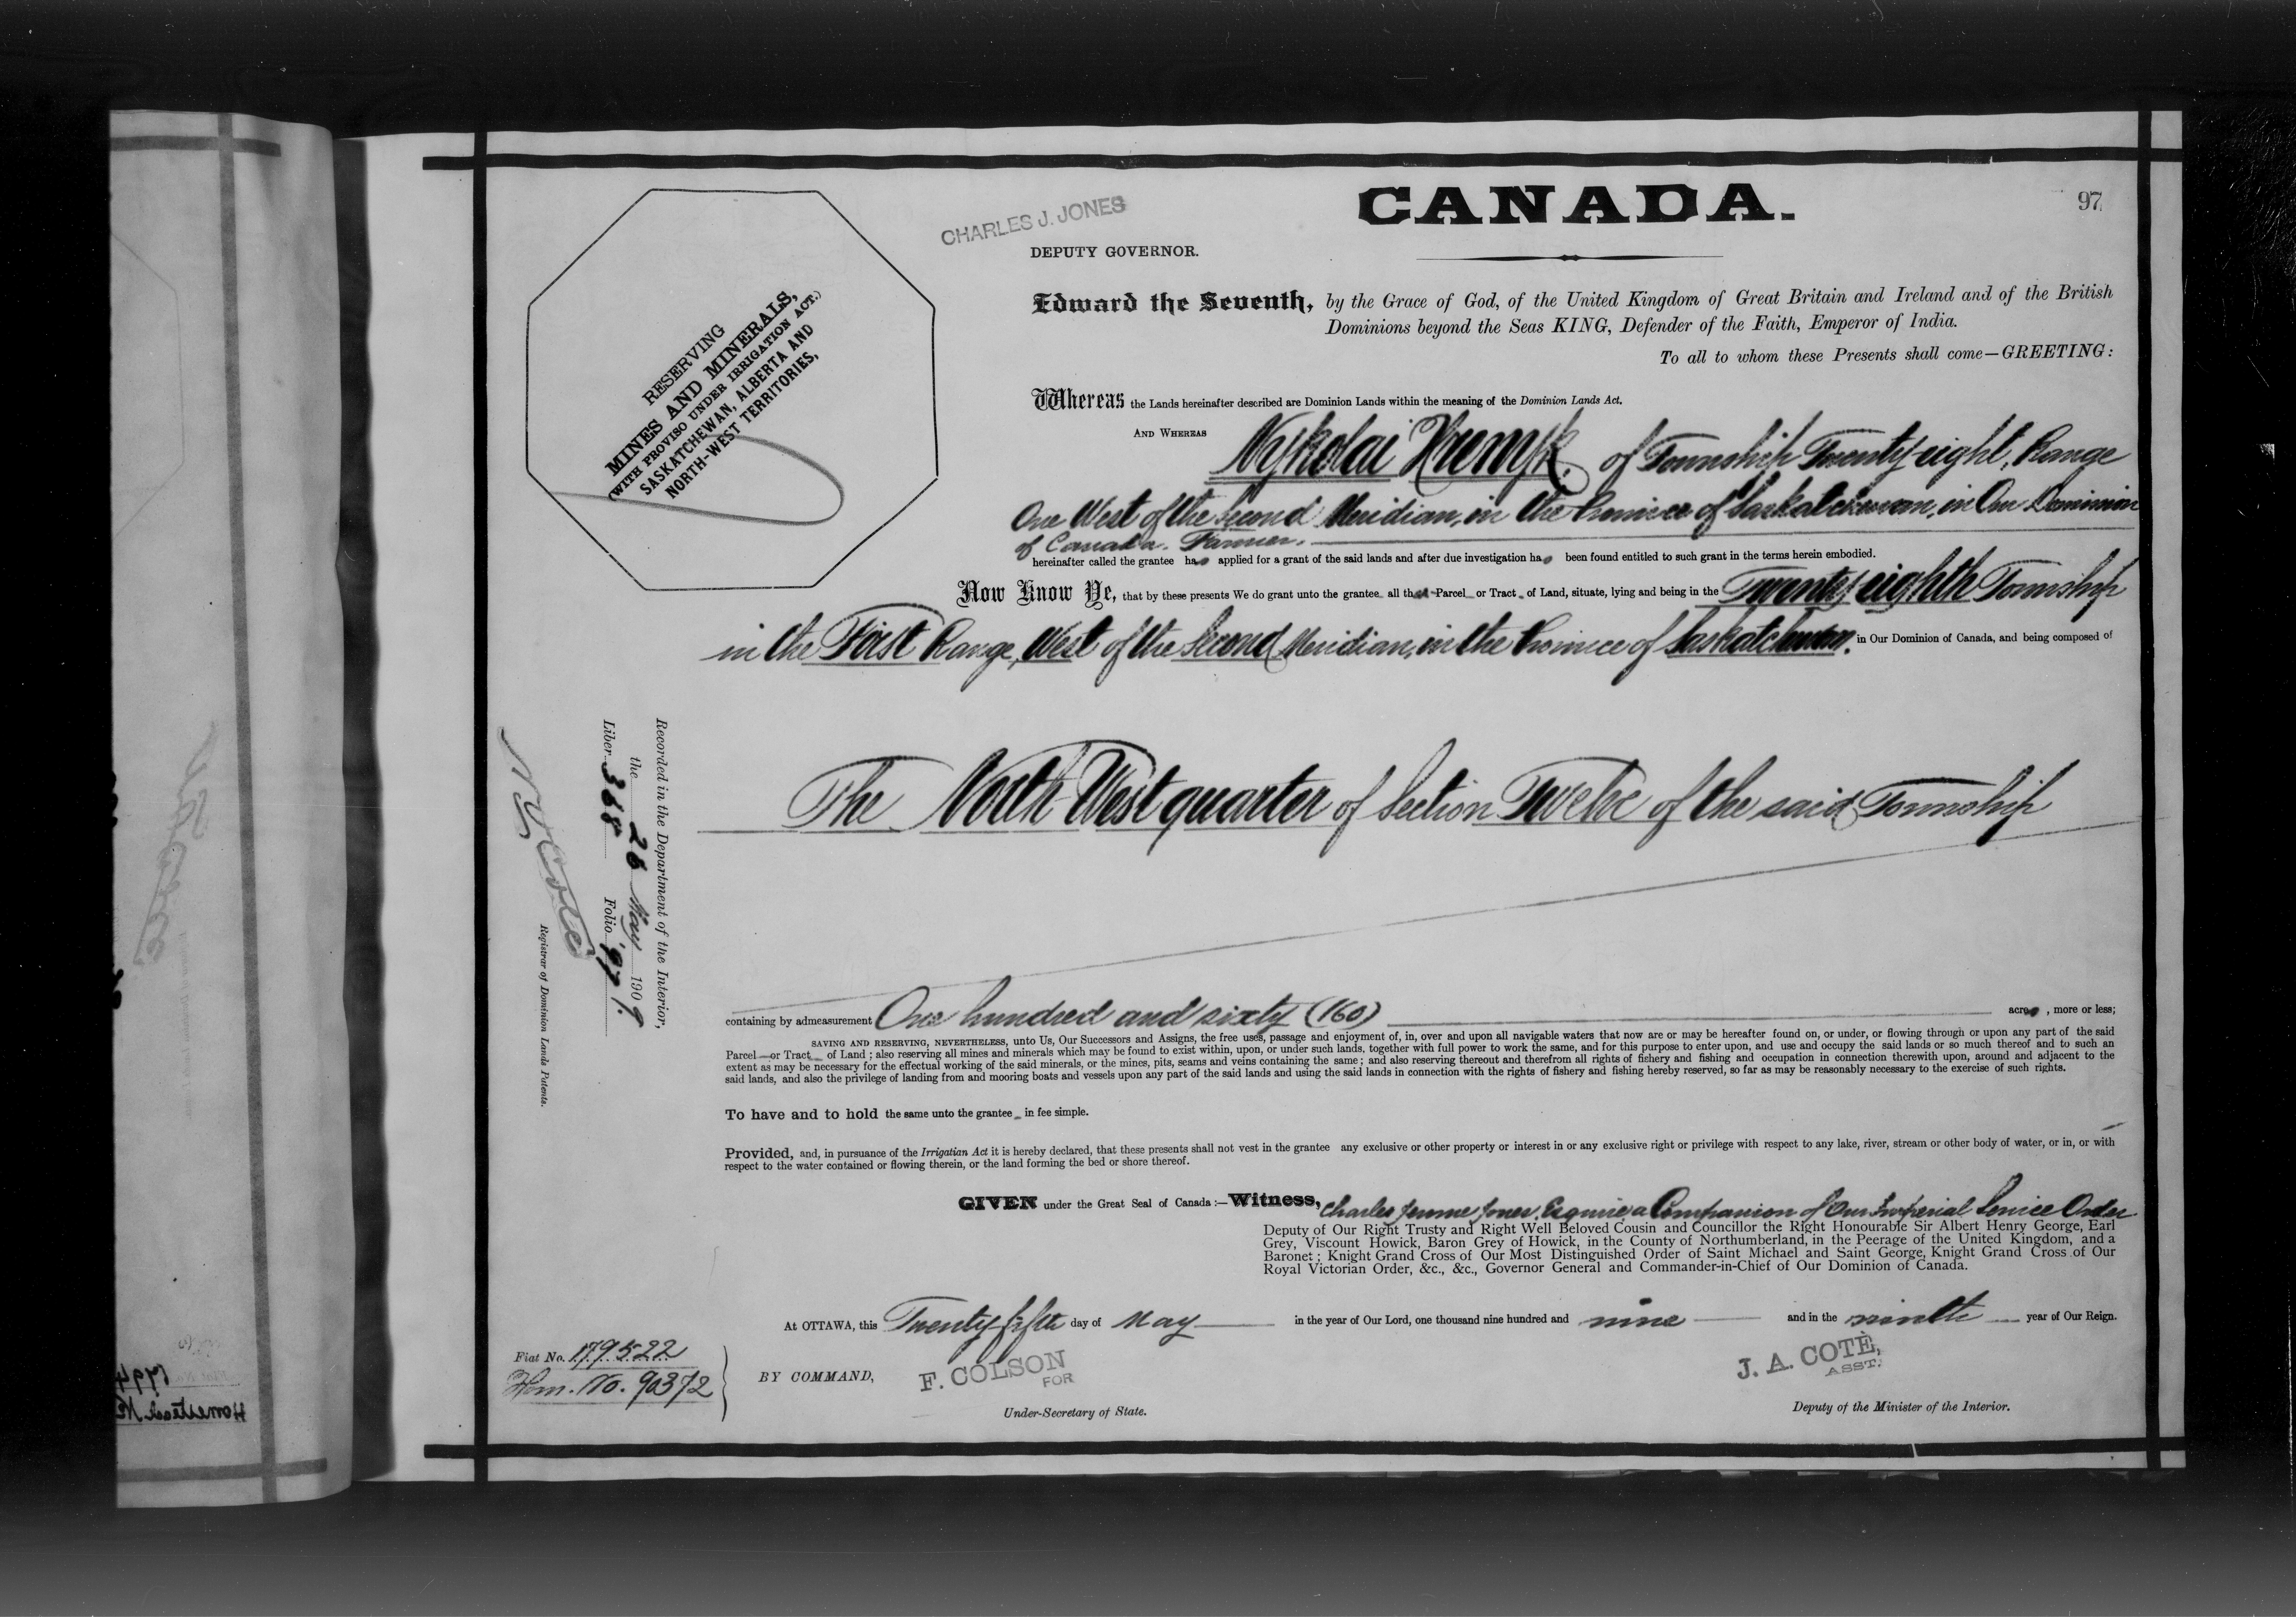 CANADA.
97
CHARLES J. JONES
DEPUTY GOVERNOR.
RESERVING
MINES AND MINERALS,
(WITH PROVISO UNDER IRRIGATION ACT.)
SASKATCHEWAN, ALBERTA AND
NORTH-WEST TERRITORIES,
Edward the Seventh, by the Grace of God, of the United Kingdom of Great Britain and Ireland and of the British
Dominions beyond the Seas KING, Defender of the Faith, Emperor of India.
To all to whom these Presents shall come—GREETING:
Whereas the Lands hereinafter described are Dominion Lands within the meaning of the Dominion Lands Act.
AND WHEREAS Nykolai of Township Twenty-eight, Range
One West of the Second Meridian, in the Province of Saskatchewan, in Our Dominion
of Canada. Farmer.
hereinafter called the grantee has applied for a grant of the said lands and after due investigation has been found entitled to such grant in the terms herein embodied.
Now Know Ye, that by these presents We do grant unto the grantee all that Parcel or Tract of Land, situate, lying and being in the Twenty-eighth Township
in the First Range, West of the Second Meridian, in the Province of Saskatchewan. in Our Dominion of Canada, and being composed of
The North West quarter of Section Twelve of the said Township
containing by admeasurement One hundred and sixty (160) acres, more or less;
SAVING AND RESERVING, NEVERTHELESS, unto Us, Our Successors and Assigns, the free uses, passage and enjoyment of, in, over and upon all navigable waters that now are or may be hereafter found on, or under, or flowing through or upon any part of the said
Parcel or Tract of Land; also reserving all mines and minerals which may be found to exist within, upon, or under such lands, together with full power to work the same, and for this purpose to enter upon, and use and occupy the said lands or so much thereof and to such an
extent as may be necessary for the effectual working of the said minerals, or the mines, pits, seams and veins containing the same; and also reserving thereout and therefrom all rights of fishery and fishing and occupation in connection therewith upon, around and adjacent to the
said lands, and also the privilege of landing from and mooring boats and vessels upon any part of the said lands and using the said lands in connection with the rights of fishery and fishing hereby reserved, so far as may be reasonably necessary to the exercise of such rights.
To have and to hold the same unto the grantee in fee simple.
Provided, and, in pursuance of the Irrigatian Act it is hereby declared, that these presents shall not vest in the grantee any exclusive or other property or interest in or any exclusive right or privilege with respect to any lake, river, stream or other body of water, or in, or with
respect to the water contained or flowing therein, or the land forming the bed or shore thereof.
GIVEN under the Great Seal of Canada:—Witness, Charles Jerome Jones, Esquire a Companion of Our Imperial Service Order
Deputy of Our Right Trusty and Right Well Beloved Cousin and Councillor the Right Honourable Sir Albert Henry George, Earl
Grey, Viscount Howick, Baron Grey of Howick, in the County of Northumberland, in the Peerage of the United Kingdom, and a
Baronet; Knight Grand Cross of Our Most Distinguished Order of Saint Michael and Saint George, Knight Grand Cross of Our
Royal Victorian Order, &c., &c., Governor General and Commander-in-Chief of Our Dominion of Canada.
At OTTAWA, this Twenty fifth day of May in the year of Our Lord, one thousand nine hundred and nine and in the ninth year of Our Reign.
Fiat No. 179522
Hom. No. 90372
BY COMMAND,
F. COLSON
FOR
Under-Secretary of State.
J. A. COTÉ,
ASST.
Deputy of the Minister of the Interior.
Recorded in the Department of the Interior,
the 26 May 1909
Liber 368 Folio 97.
N O Coté
Registrar of Dominion Lands Patents.